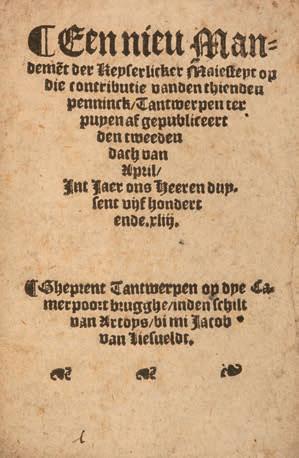 ¶Een nieu Man-
demēt der Keyserlicker Maiesteyt op
die contributie vanden thienden
penninck/Tantwerpen ter
puyen af gepubliceert
den tweeden
dach van
April/
Int Jaer ons Heeren duy-
sent vijf hondert
ende.xliij.
¶Gheprent Tantwerpen op dye Ca-
merpoort brugghe/inden schilt
van Artoys/bi mi Jacob
van Liesueldt.